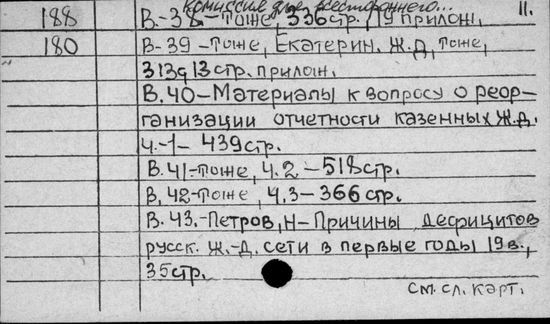 Комиссия для всестороннего... II.
188 В-38-Тоже, 336стр., 19 прилож.
180 В-39-Тоже, Екатерин. Ж.Д, тоже,
313 и 13стр. прилож.
В.40-Материалы к вопросу о реор-
ганизации отчетности казенных Ж.Д.
Ч.-1-439стр.
В.41-тоже, Ч.2-518стр.
В.42-тоже, Ч.3-366стр.
В.43.-Петров, Н-Причины дефицитов
русск. ж.-д. сети в первые годы 19в.,
35стр.
См. сл. карт.